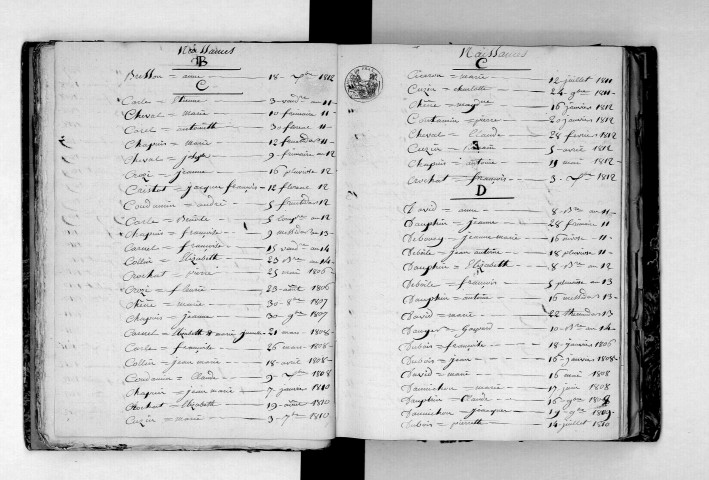 Naissances
B
Buisson = anne - 18 - 1812
C
Carle = Etienne - 3 vend.re an 11 -
Cheval = marie - 10 frimaire 11 -
Carel = antoinette - 30 floreal 11 -
Chapuis = marie - 12 fructidor 11 -
Cheval = - 9 frimaire an 12
Crozi = jeanne - 16 pluviose 12
Cristot = jacques françois - 12 floreal 12
Coudamin = andré - 5 fructidor 12
Carle = Benoite - 5 an 12
Chapuis = françoise - 9 messidor an 13
Carnel = françoise - 15 vend.re an 14
Collin = Elizabeth - 23 an 14
Crochat = pierre - 25 mai 1806
Crozi = fleurie - 23 août 1806
Chêne = marie - 30 8bre 1807
Chapuis = jeanne - 30 9bre 1807
Carnel = Elizabeth & marie - 21 mars 1808
Carle = françoise - 26 mars 1808
Collin = jean marie - 18 avril 1808
Coudamin = Claude - 9 1808
Chapuis = jean marie - 7 janvier 1810
Crochat = Elizabeth - 19 août 1810
Cuzin = marie - 3 7bre 1810
Naissances
C
Ciceron = marie - 12 juillet 1811
Cuzin = charlotte - 24 9bre 1811
Chêne = - 16 janvier 1812
Coudamin = pierre - 20 janvier 1812
Cheval = Claude - 28 fevrier 1812
Cuzin = - 5 avril 1812
Chapuis = antoine - 11 mai 1812
Crochat = françois - 3 1812
D
David = anne - 8 an 11
Dauphin = jeanne - 28 frimaire 11
Debourg = jeanne marie - 16 11
Deboile = jean antoine - 18 pluviose 11
Dauphin = Elizabeth - 8 an 12
Deboile = françois - 5 pluviose an 13
Dauphin = antoine - 16 messidor 13
David = marie - 22 thermidor 13
Dauger = gaspard - 10 an 14
Dubois = françoise - 18 janvier 1806
Dubois = jean - 16 janvier 1808
David = marie - 16 mai 1808
Daumichon = marie - 17 juin 1808
Dauphin = Claude - 16 9bre 1808
Daumichon = - 19 9bre 1809
Dubois = pierrette - 14 juillet 1810